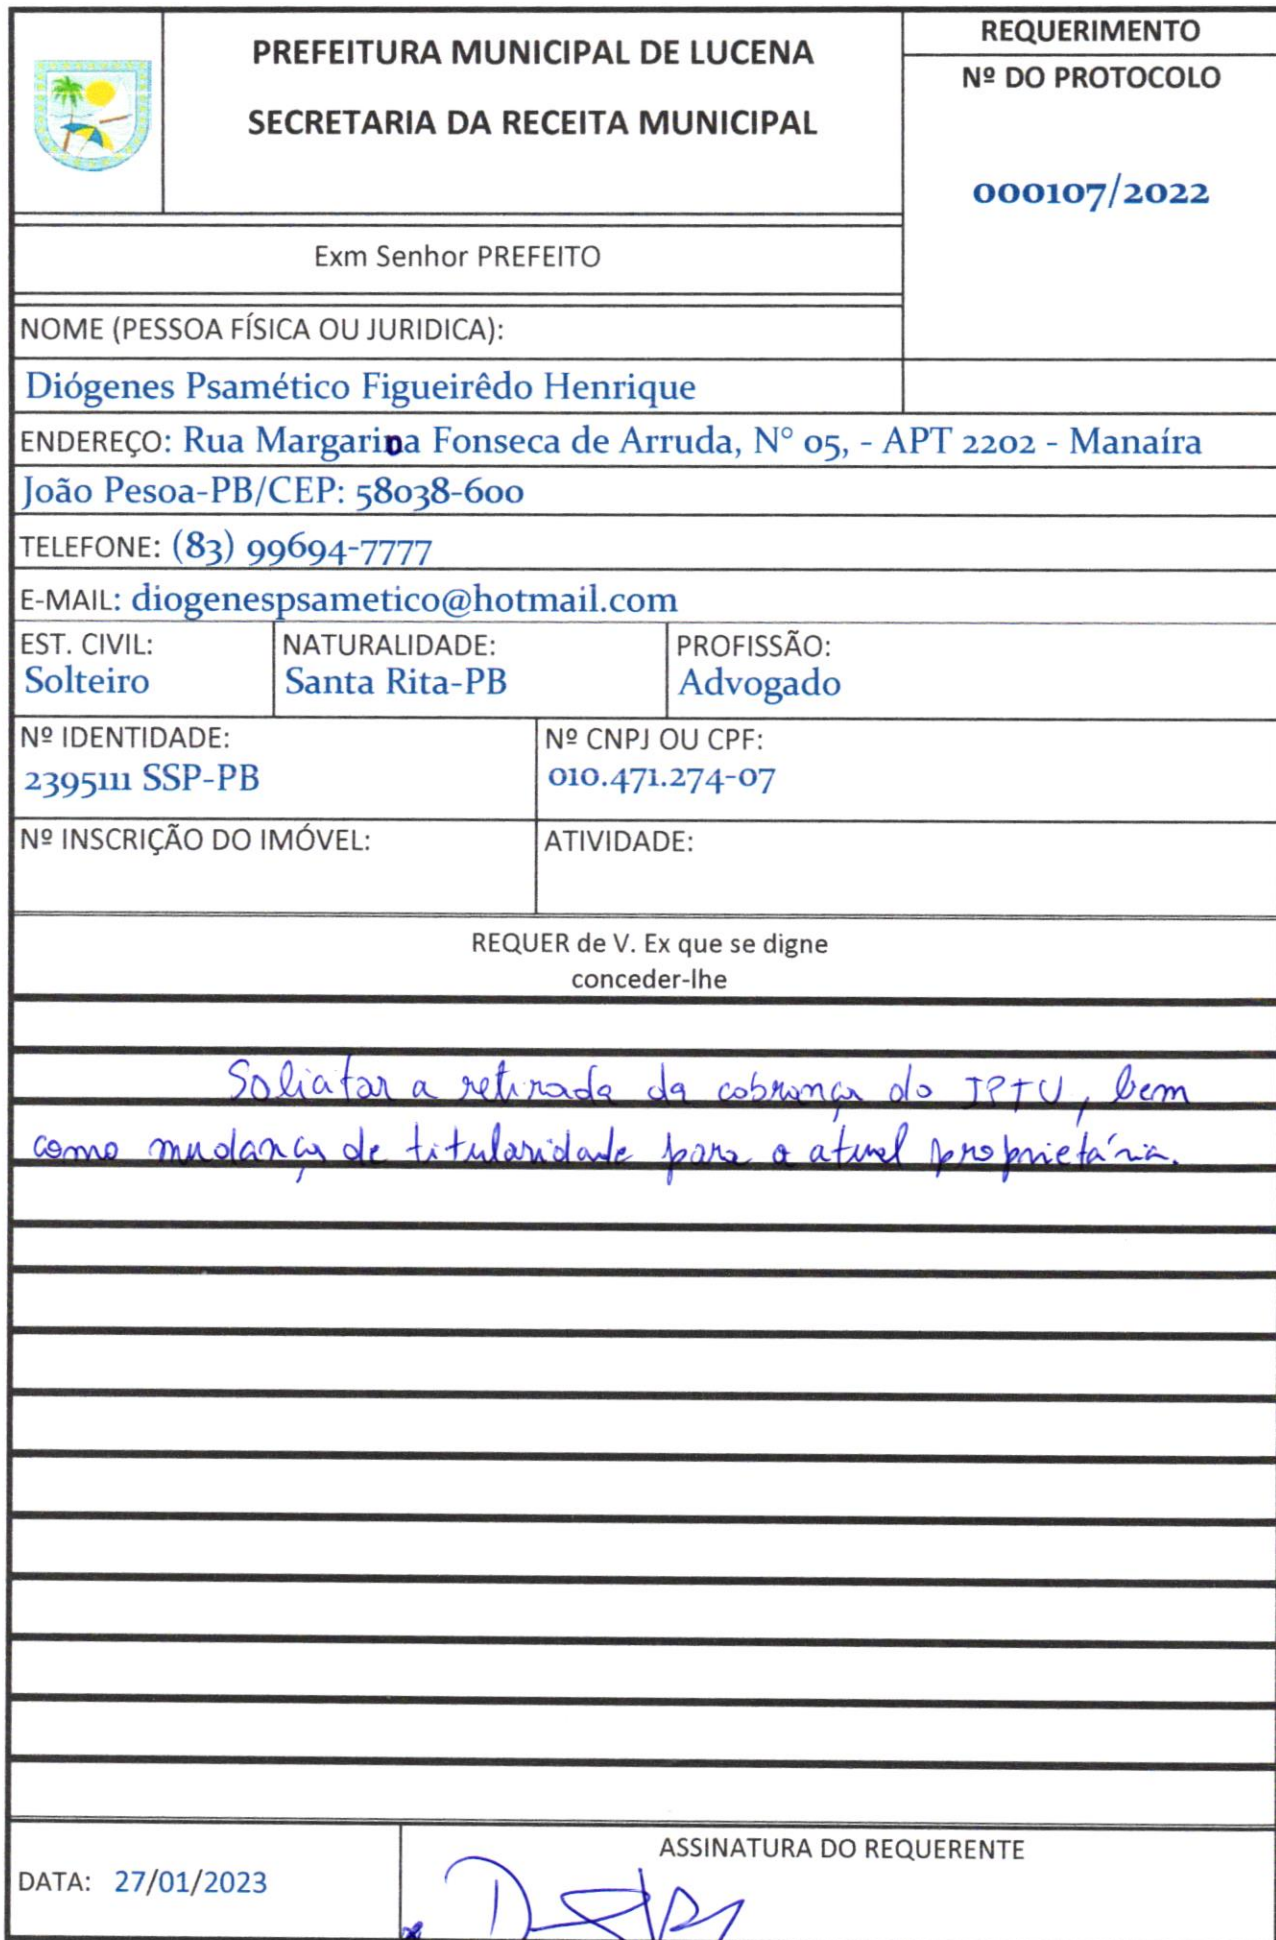 PREFEITURA MUNICIPAL DE LUCENA
SECRETARIA DA RECEITA MUNICIPAL
REQUERIMENTO
Nº DO PROTOCOLO
000107/2022
Exm Senhor PREFEITO
NOME (PESSOA FÍSICA OU JURIDICA):
Diógenes Psamético Figueirêdo Henrique
ENDEREÇO: Rua Margarina Fonseca de Arruda, N° 05, - APT 2202 - Manaíra
João Pesoa-PB/CEP: 58038-600
TELEFONE: (83) 99694-7777
E-MAIL: diogenespsametico@hotmail.com
EST. CIVIL: NATURALIDADE: PROFISSÃO:
Solteiro Santa Rita-PB Advogado
Nº IDENTIDADE: Nº CNPJ OU CPF:
2395111 SSP-PB 010.471.274-07
Nº INSCRIÇÃO DO IMÓVEL: ATIVIDADE:
REQUER de V. Ex que se digne
conceder-lhe
Solicitar a retirada da cobrança do IPTU, bem
como mudança de titularidade para a atual proprietária.
ASSINATURA DO REQUERENTE
DATA: 27/01/2023